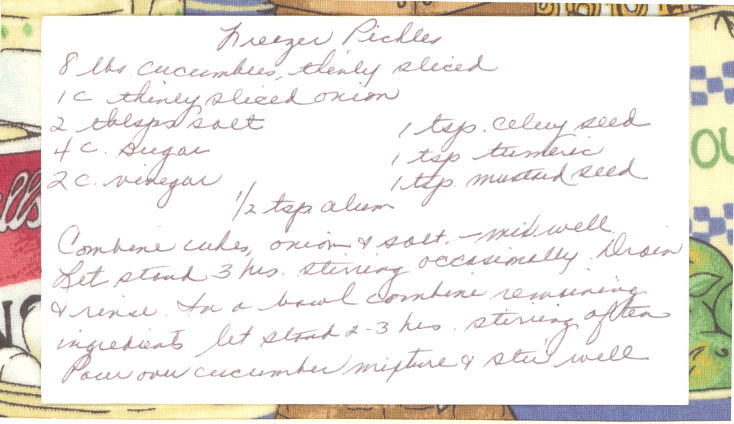 Freezer Pickles
8 lbs. cucumbers, thinly sliced
1 c thinly sliced onion
2 tblsps salt
1 tsp. celery seed
4 c. sugar
1 tsp tumeric
2 c. vinegar
1 tsp. mustard seed
1/2 tsp alum
Combine cukes, onion & salt. - mix well
Let stand 3 hrs. stirring occasionally. Drain
& rinse. In a bowl combine remaining
ingredients let stand 2-3 hrs. stirring often
Pour over cucumber mixture & stir well